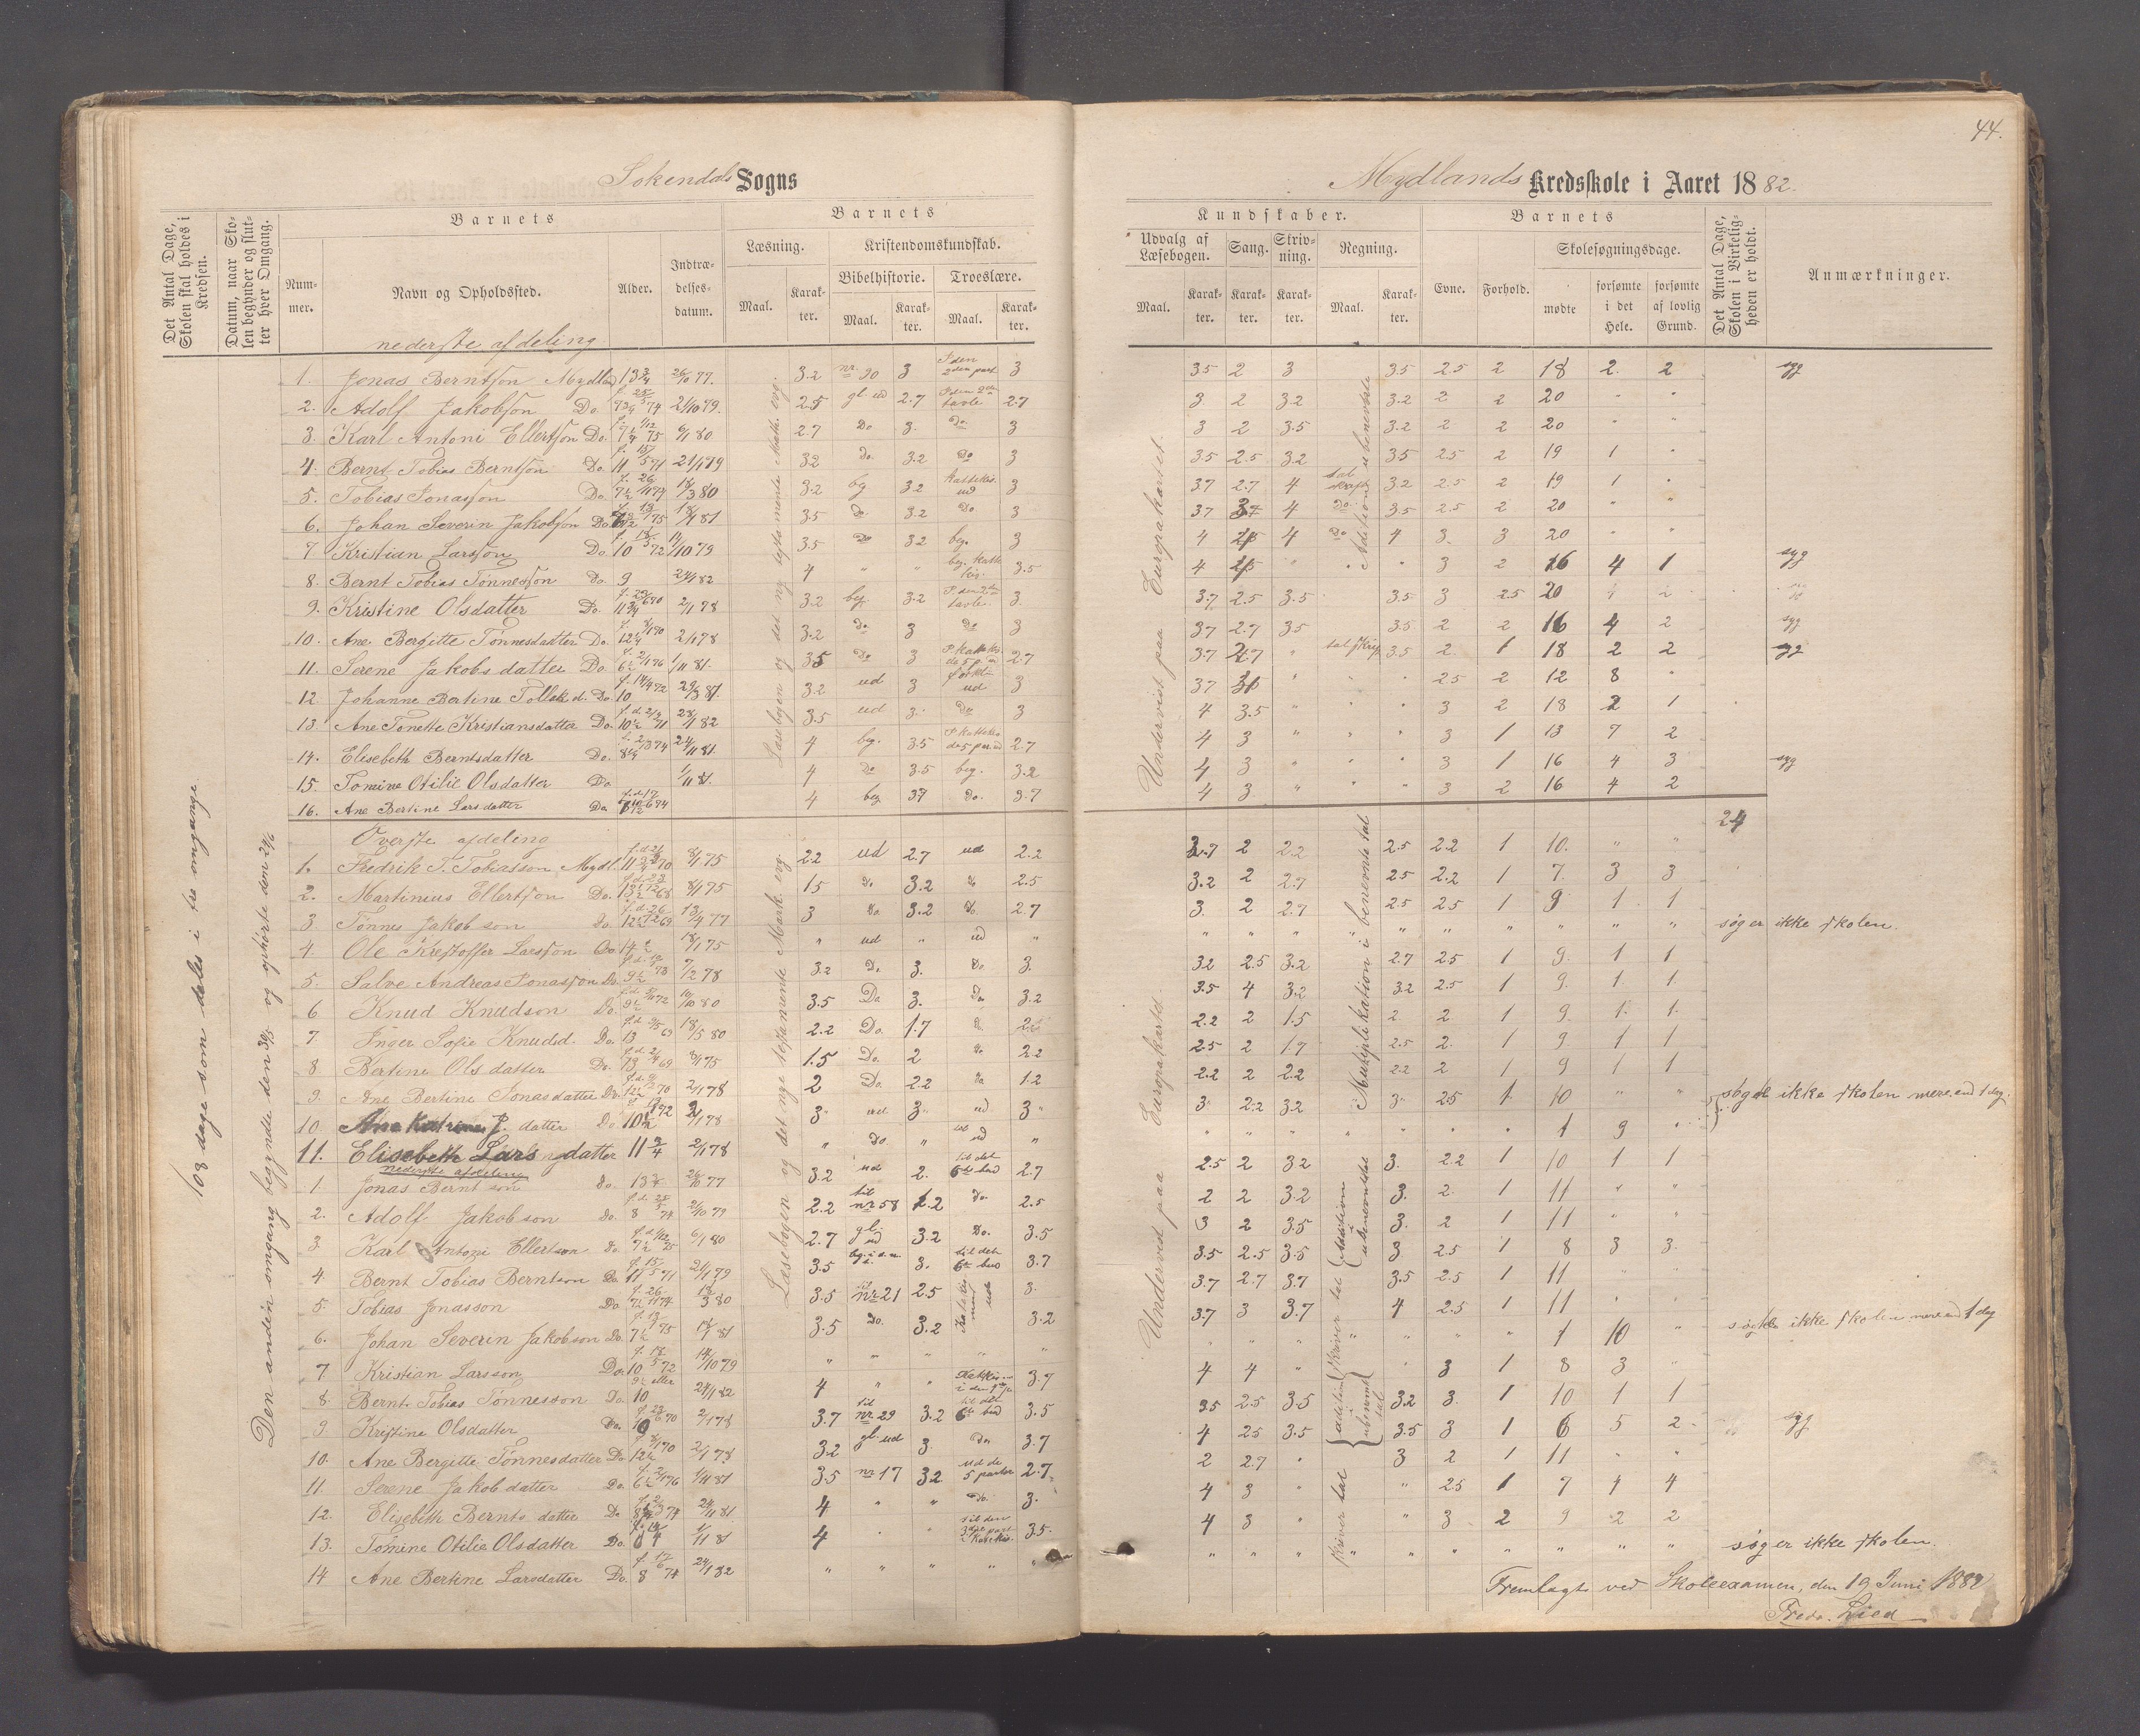 44.
Sokendals Sogns
Mydlands Kredsskole i Aaret 1882.
Det Antal Dage, Skolen skal holdes i Kredsen.
Datum, naar Skolen begynder og slutter hver Omgang.
Barnets
Nummer.
Navn og Opholdssted.
Alder.
Indtrædelsesdatum.
Barnets
Læsning.
Kristendomskundskab.
Bibelhistorie.
Troeslære.
Maal.
Karakter.
Maal.
Karakter.
Maal.
Karakter.
Kundskaber.
Udvalg af Læsebogen.
Sang.
Skrivning.
Regning.
Maal.
Karakter.
Karakter.
Karakter.
Maal.
Karakter.
Barnets
Evne.
Forhold.
Skolesøgningsdage.
mødte
forsømte i det Hele.
forsømte af lovlig Grund.
Det Antal Dage, Skolen i Virkeligheden er holdt.
Anmærkninger.
108 dage som deles i tre omgange
Den anden omgang begyndte den 30/5 og ophørte den 24/6
nederste afdeling
1. Jonas Berntson Mydland 13 3/4 26/10 77. 3.2 nr. 90 3 3 3.5 2 3 3.5 2.5 2 18 2. 2 syg
2. Adolf Jakobson Do. 2/10 79. 2.5 gl ud 2.7 2.7 3 2 3.2 3.2 2 2 20 " "
3. Karl Antoni Ellertson Do. 6/1 80 2.7 Do 3. Do. 3 3 2 3.5 3.2 2 2 20 " "
4. Bernt Tobias Berntson Do. 21/1 79 3.2 Do. 3.2 Do 3 3.5 2.5 3.2 3.5 2.5 2 19 1 "
5. Tobias Jonasson Do. 18/3 80 3.2 bg 3.2 3 3.7 2.7 4 3.2 2.5 2 19 1 "
6. Johan Severin Jakobson Do 18/1 81 3.5 do. 3.2 Do. 3 3.7 4 Do. 3.5 2.5 2 20 " "
7 Kristian Larsson Do. 10 14/10 79 3.5 Do 3.2 beg. 3 4 4 Do 4 3. 3 20 "
8. Bernt Tobias Tønnesson Do. 9 24/1 82 4 " " 3.5 4 " " " 3 2 16 4 1 syg
9. Kristine Olsdatter Do. 11 3/4 2/1 78 3.2 beg. 3.2 3 3.7 2.5 3.5 3.5 3 2.5 20
10. Ane Bergitte Tønnesdatter Do. 12 1/4 2/1 78 3.2 do 3 do 3 3.7 2.7 3.5 3.5 2 2 16 4 2 syg
11. Serene Jakobsdatter Do 6 1/2 1/11 81. 3.5 Do 3 2.7 3.7 " talskrip 3.5 2. 1 18 2 2 syg
12 Johanne Bertine Tollaksd. Do. 10 29/3 81. 3.2 ud 3 3 3.7 " " " 2.5 2 12 8 "
13. Ane Tonette Kristiansdatter Do. 10 1/2 28/1 82 3.5 ud 3. Do 3 4 3.5 " " " 3 2 18 2 1
14. Elisebeth Berntsdatter Do. 8 1/4 24/11 81. 4 beg. 3.5 2.7 4 3 " " " 3 1 13 7 2
15. Tomine Otilie Olsdatter Do 1/11 81. 4 Do 3.5 beg. 3.2 4 3 " " " 3 1 16 4 3 syg
16. Ane Bertine Larsdatter Do 4 beg 3.7 Do. 3.7 4 3 " " " 3 2 16 4 2
Læsebogen og det ny testamente Math. evg.
Undervist paa Europakartet.
Adition i ubenevnte
24
Øverste afdeling
1. Fredrik T. Tobiasson Mydl. 11 3/4 2.2 ud 2.7 ud 2.2 2 2.2 2.5 2.2 1 10. " "
2. Martinius Ellertson Do. 13 1/2 1.5 Do 3.2 Do 2.5 3.2 2 2.7 2.5 2.2 1 7. 3 3
3 Tønnes Jakobson Do. 12 1/2 13/4 77 3 Do. 3.2 Do. 2.7 3. 2 2.7 2.5 2.5 1 9 1 1
4. Ole Kristoffer Larsson Do. 14 1/2 " ud " ud " " " " " " " " " " søger ikke skolen.
5. Salve Andreas Jonasson Do. 9 1/2 7/2 78 3.2 Do 3. Do 3. 3.2 2.5 3.2 2.7 2.5 1 9. 1 1
6 Knud Knudson Do. 9 1/2 3.5 Do 3. Do 3.2 3.5 4 3.2 3.2 2.5 1 9. 1 1
7 Inger Sofie Knudsd. Do. 13 18/5 80 2.2 Do. 1.7 2.2 2 1.5 2. 2. 1 9. 1. 1.
8 Bertine Olsdatter Do. 13 1.5 Do. 2 Do 2.2 2.5 2 1.7 2.5 2. 1 9. 1 1
9. Ane Bertine Jonasdatter Do. 12 1/2 2/1 78 2 Do. 2.2 Do 1.2 2.2 2 2.2 2.2 2 1 9 1 1
10. Ane Katrine J. datter Do 10 1/2 2/1 78 3" ud 3" ud 3" 3" 2.2 3.2 3" 2.5 1. 10 " "
11. Elisebeth Larsdatter 11 3/4 2/1 78 " do " ud " " " " " " " " 1 9 " søgte ikke skolen mere end 1 dag.
Multiplikation i benevnte tal
nederste afdeling
1. Jonas Berntson Do. 13 3/4 26/10 77 3.2 ud 2. til det 6te bud 2.7 2.5 2 3.2 3. 2.2 1 10 1 1
2. Adolf Jakobson Do. 8 2/10 79 2.2 til nr 58 do. 2.5 2 2 3.2 3. 2. 1 11 " "
3. Karl Antoni Ellertson Do. 7 1/2 6/1 80 2.7 gl. ud 3.2 Do. 3.5 3 2 3.5 3. 2 1 11 " "
4. Bernt Tobias Berntson Do. 11 21/1 79 3.5 3. til det 6te bud 3.7 3.5 2.5 3.5 3 2.5 1 8 3 3.
5. Tobias Jonasson Do. 7 1/2 18/3 80 3.5 til nr 21 2.5 3. 3.7 2.7 3.7 3.5 2.5 1 11 " "
6. Johan Severin Jakobson Do. 7 1/2 18/1 81 3.5 Do. 3.2 3.2 3.7 3 3.7 4 2.5 1 11 " "
7 Kristian Larsson Do. 10 14/10 79 " " " " " " " " " " " 1 10 " søgte ikke skolen mere end 1 dag
8. Bernt Tobias Tønnesson Do. 10 24/1 82 4 " " 3.7 4 4 " " 3 1 8 3 "
9. Kristine Olsdatter Do. 2/1 78 3.7 til nr. 29 3.2 til det 6te bud 3.5 3.5 2.5 3.5 3.2 3. 1 10 1 1
10. Ane Bergitte Tønnesdatter Do 12 1/2 2/1 78 3.2 gl. ud 3. Do 3.7 4 2.5 3.5 3.5 3 1 6 5 2 syg
11. Serene Jakobdatter Do. 6 1/2 1/11 81 3.5 nr 17 3.2 ud de 5 parter 2.7 2 2.7 " 3 2 1 11 " "
12. Elisebeth Berntsdatter Do 24/11 81 4 " " Do. 3. 4 3 " " 2.5 1 7 4 4
13. Tomine Otilie Olsdatter Do. 1/11 81 4 " " 3.5. 4 3 " " 3 2 9 2 2
14 Ane Bertine Larsdatter Do. 8 24/1 82 " " " " " " " " " " " " " " søger ikke skolen.
Læsebogen og det nye testamente Mark. evg.
Undervist paa Europakartet
skriver tal
Adition i ubenevnte tal
Fremlagt ved Skoleexamen, den 19 Juni 1882
Fredr. Lied